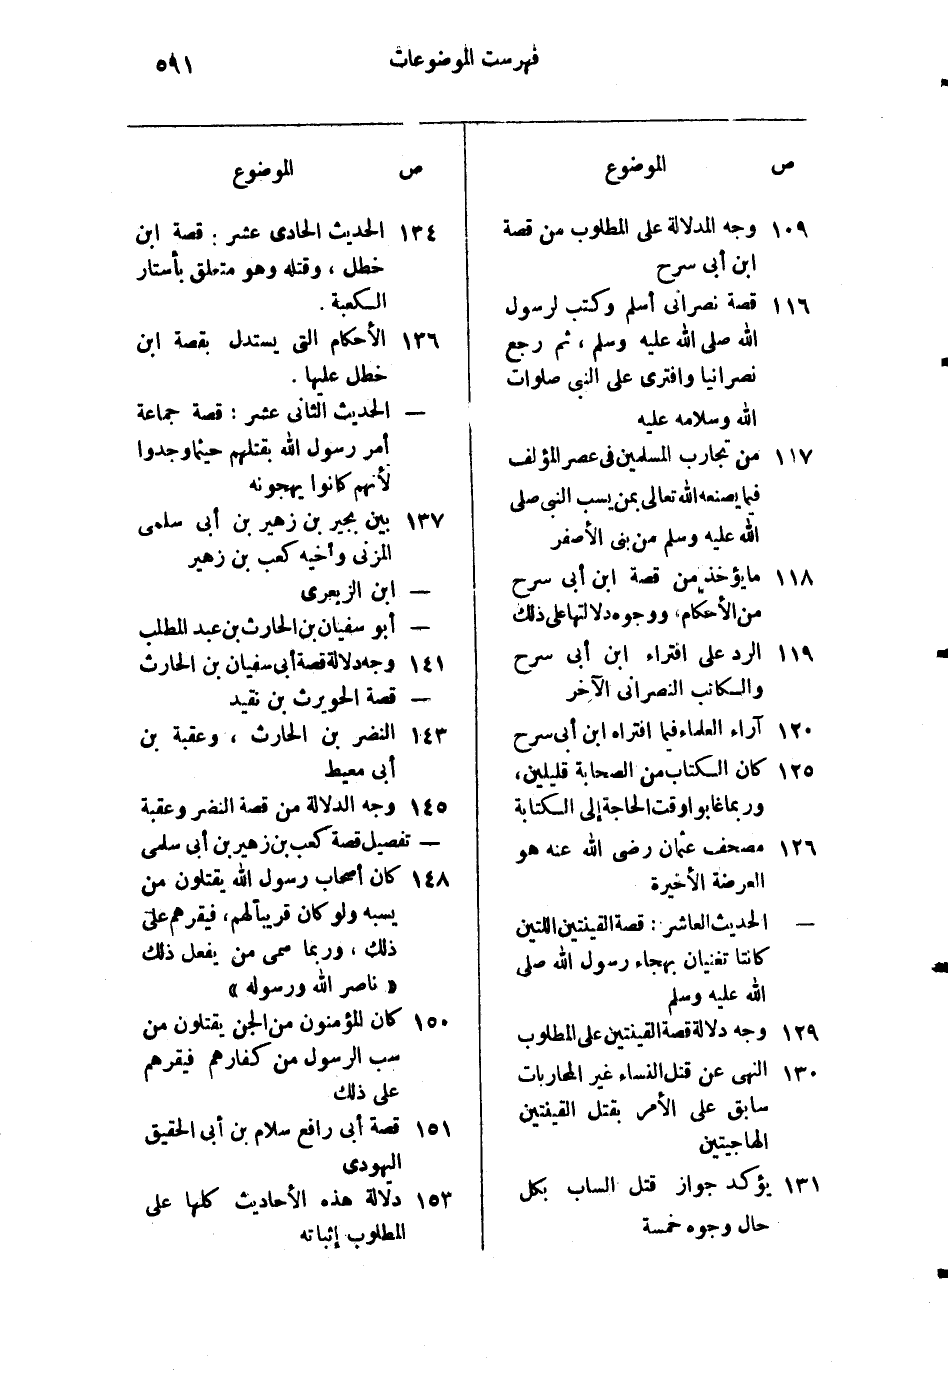 فهرست الموضوعات ٥٩١
ص الموضوع
١٠٩ وجه الدلالة على المطلوب من قصة
ابن أبى سرح
١١٦ قصة نصرانى أسلم وكتب لرسول
الله صلى الله عليه وسلم ، ثم رجع
نصرانيا وافترى على النبى صلوات
الله وسلامه عليه
١١٧ من تجارب المسلمين فى عصر المؤلف
فيما يصنعه الله تعالى بمن يسب النبى صلى
الله عليه وسلم من بنى الأصفر
١١٨ ما يؤخذ من قصة ابن أبى سرح
من الأحكام، ووجوه دلالتها على ذلك
١١٩ الرد على افتراء ابن أبى سرح
والكاتب النصرانى الآخر
١٢٠ آراء العلماء فيما افتراه ابن أبى سرح
١٢٥ كان الكتاب من الصحابة قليلين ،
وربما غابوا وقت الحاجة إلى الكتابة
١٢٦ مصحف عثمان رضى الله عنه هو
العرضة الأخيرة
— الحديث العاشر : قصة القينتين اللتين
كانتا تغنيان بهجاء رسول الله صلى
الله عليه وسلم
١٢٩ وجه دلالة قصة القينتين على المطلوب
١٣٠ النهى عن قتل النساء غير المحاربات
سابق على الأمر بقتل القينتين
الهاجيتين
١٣١ يؤكد جواز قتل الساب بكل
حال وجوه خمسة
ص الموضوع
١٣٤ الحديث الحادى عشر : قصة ابن
خطل ، وقتله وهو متعلق بأستار
الكعبة .
١٣٦ الأحكام التى يستدل بقصة ابن
خطل عليها .
— الحديث الثانى عشر : قصة جماعة
أمر رسول الله بقتلهم حيثما وجدوا
لأنهم كانوا يهجونه
١٣٧ بين بجير بن زهير بن أبى سلمى
المزنى وأخيه كعب بن زهير
— ابن الزبعرى
— أبو سفيان بن الحارث بن عبد المطلب
١٤١ وجه دلالة قصة أبى سفيان بن الحارث
— قصة الحويرث بن نقيد
١٤٣ النضر بن الحارث ، وعقبة بن
أبى معيط
١٤٥ وجه الدلالة من قصة النضر وعقبة
— تفصيل قصة كعب بن زهير بن أبى سلمى
١٤٨ كان أصحاب رسول الله يقتلون من
يسبه ولو كان قريباً لهم، فيقرهم على
ذلك ، وربما سمى من يفعل ذلك
« ناصر الله ورسوله »
١٥٠ كان المؤمنون من الجن يقتلون من
سب الرسول من كفارهم فيقرهم
على ذلك
١٥١ قصة أبى رافع سلام بن أبى الحقيق
اليهودى
١٥٣ دلالة هذه الأحاديث كلها على
المطلوب إثباته